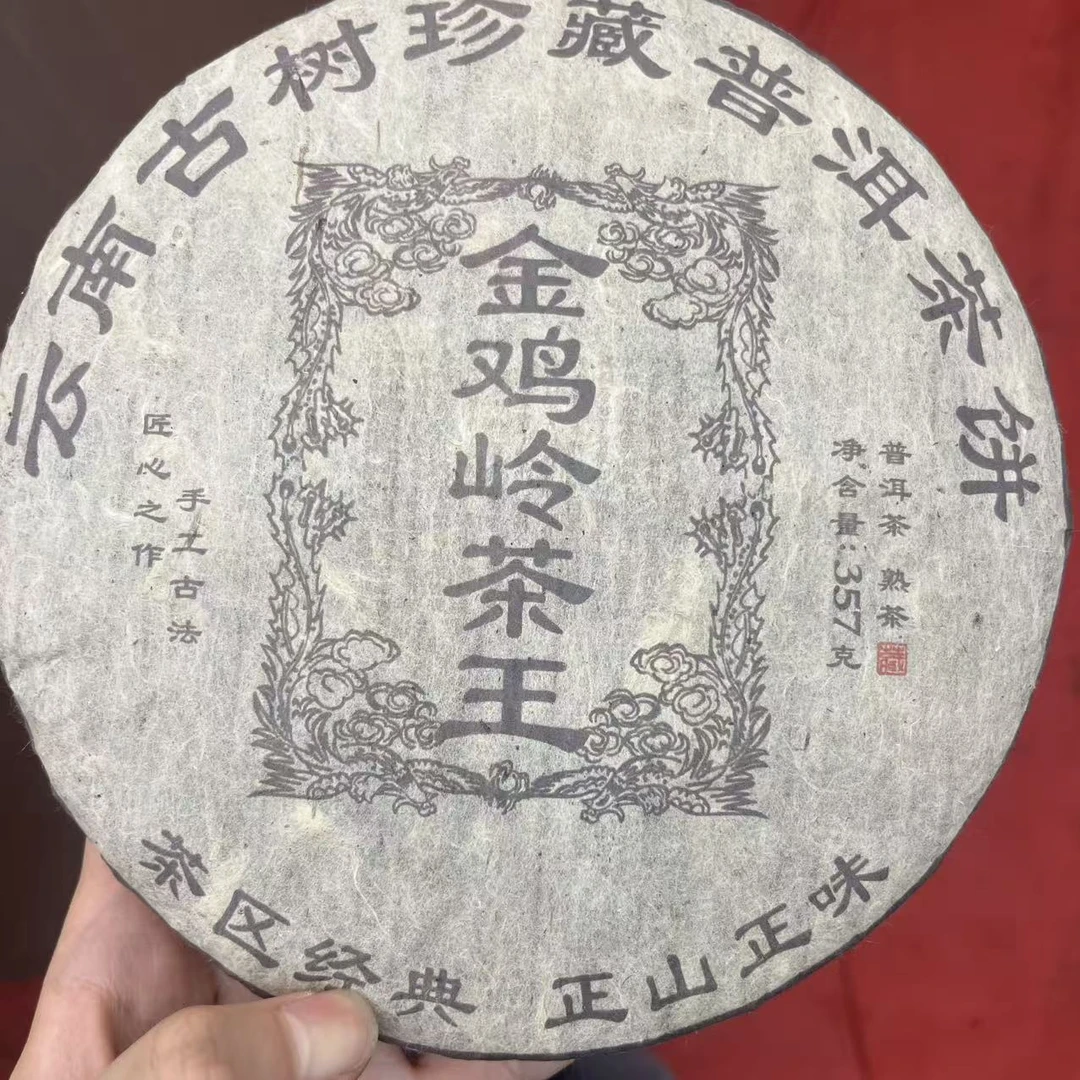 云南古树珍藏普洱茶饼
金鸡岭茶王
普洱茶 熟茶
藏
净含量:357克
手工古法
匠心之作
茶区经典 正山正味